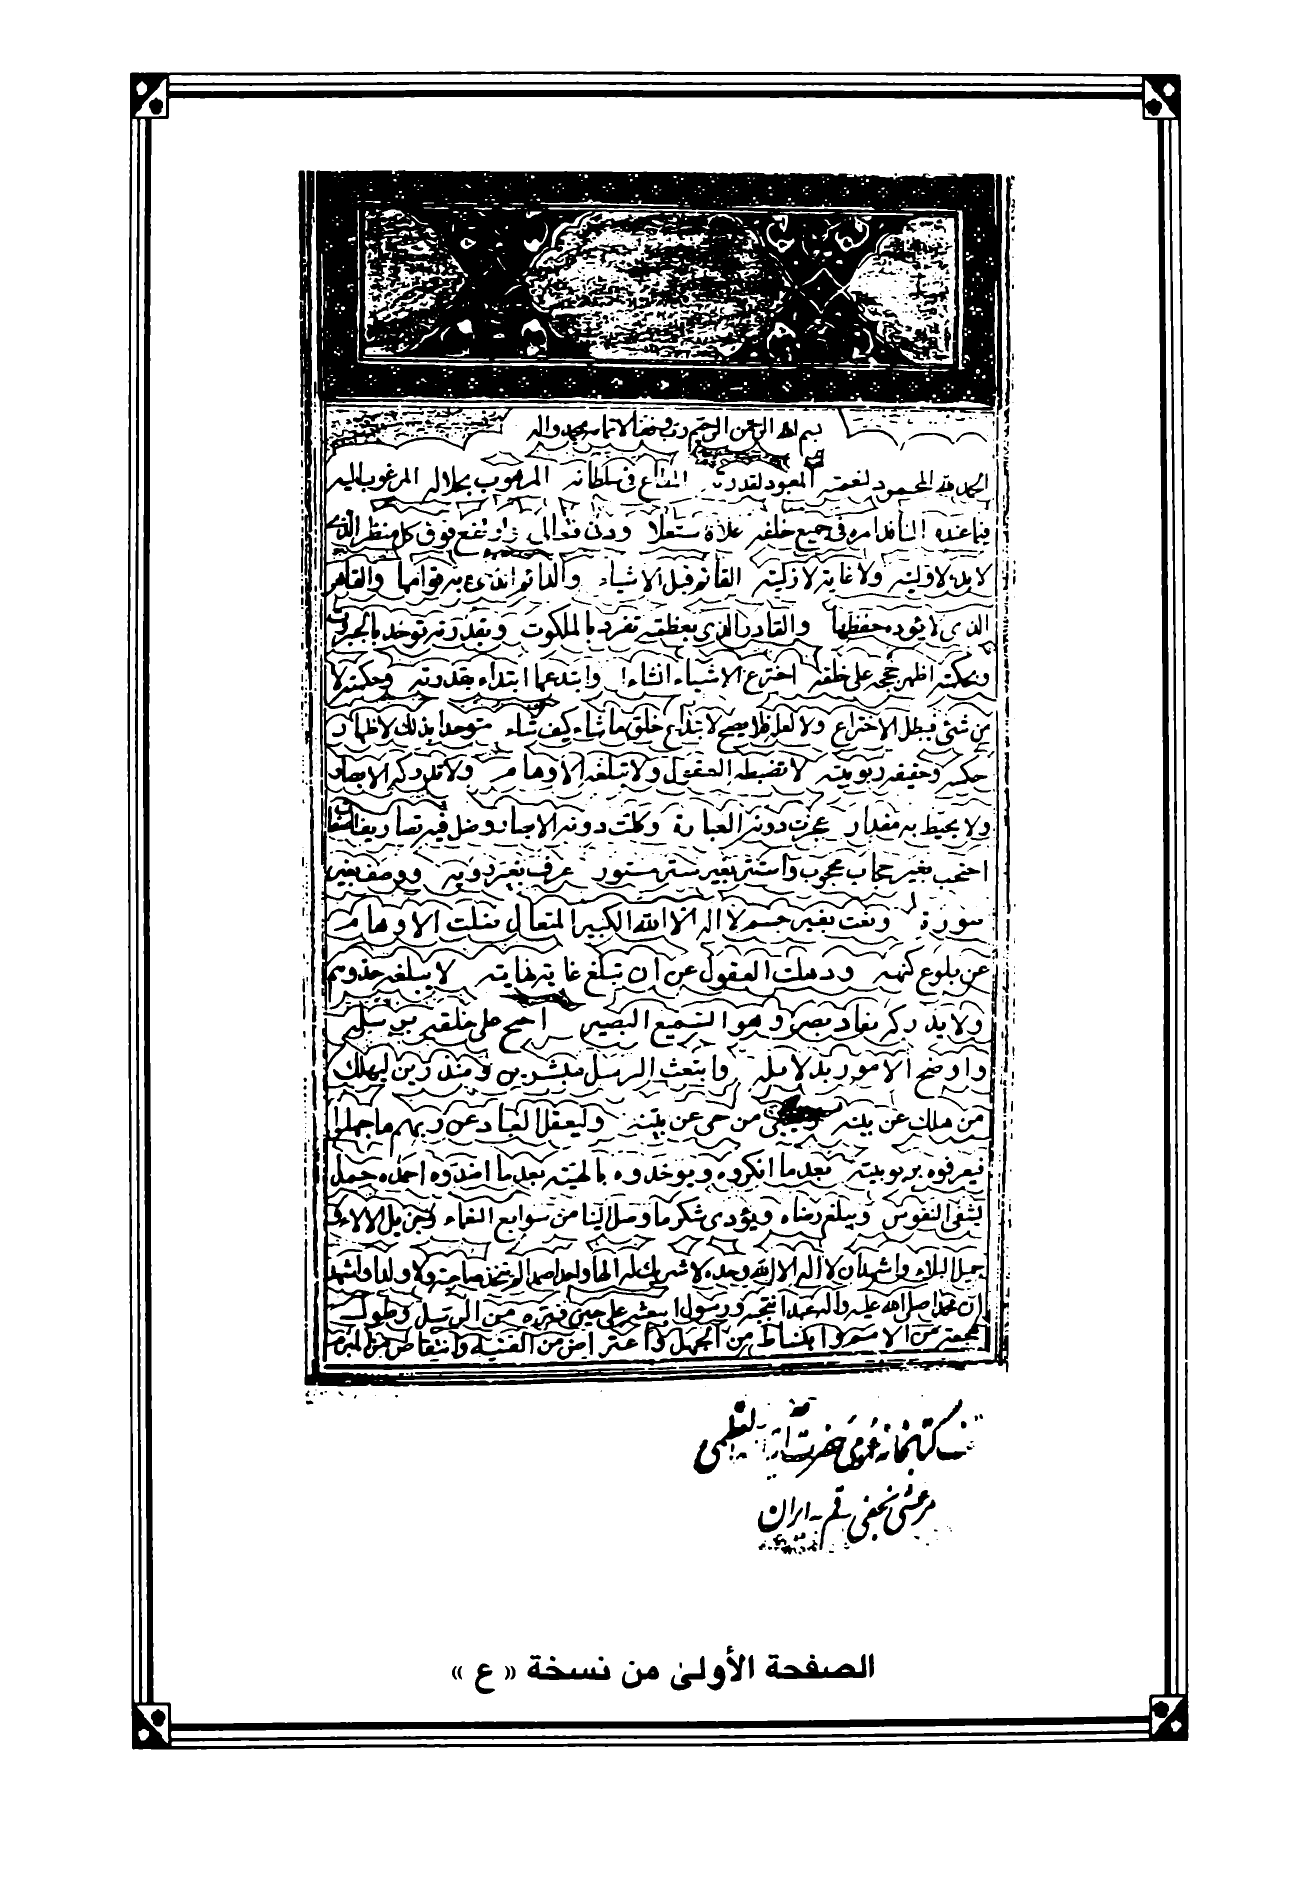 بسم الله الرحمن الرحيم رب وفقنا لاتمامه بمحمد واله
الحمد لله المحمود لنعمته المعبود لقدرته المطاع في سلطانه المرهوب بجلاله المرغوب اليه
فيما عنده النافذ امره في جميع خلقه علا فاستعلا ودنى فتعالى وارتفع فوق كل منظر الذي
لا بدء لاوليته ولا غاية لازليته القائم قبل الاشياء والدائم الذي به قوامها والقاهر
الذي لا يؤده حفظها والقادر الذي بعظمته تفرد بالملكوت وبقدرته توحد بالجبروت
وبحكمته اظهر حججه على خلقه اخترع الاشياء انشاءا وابتدعها ابتداء بقدرته وحكمته لا
من شئ فيبطل الاختراع ولا لعلة فلا يصح الابتداع خلق ما شاء كيف شاء متوحدا بذلك لاظهار
حكمته وحقيقة ربوبيته لا تضبطه العقول ولا تبلغه الاوهام ولا تدركه الابصار
ولا يحيط به مقدار عجزت دونه العبارة وكلت دونه الابصار وضل فيه تصاريف الصفات
احتجب بغير حجاب محجوب واستتر بغير ستر مستور عرف بغير روية ووصف بغير
صورة ونعت بغير جسم لا اله الا الله الكبير المتعال ضلت الاوهام
عن بلوغ كنهه وذهلت العقول عن ان تبلغ غاية نهايته لا يبلغه حد وهم
ولا يدركه نفاد بصر وهو السميع البصير احتج على خلقه برسله
واوضح الامور بدلائله وابتعث الرسل مبشرين ومنذرين ليهلك
من هلك عن بينة ويحيى من حى عن بينة وليعقل العباد عن ربهم ما جهلوا
فيعرفوه بربوبيته بعد ما انكروه ويوحدوه بالهيته بعد ما اضدوه احمده حمدا
يشفى النفوس ويبلغ رضاه ويؤدى شكر ما وصل الينا من سوابغ النعماء وجزيل الالاء و
جميل البلاء واشهد ان لا اله الا الله وحده لا شريك له الها واحدا صمدا لم يتخذ صاحبة ولا ولدا واشهد
ان محمدا صلى الله عليه واله عبد انتجبه ورسول ابتعثه على حين فترة من الرسل وطول
هجعة من الامم وانبساط من الجهل واعتراض من الفتنة وانتقاض من المبرم
كتابخانه عمومى حضرت آية الله العظمى
مرعشى نجفى قم - ايران
الصفحة الأولى من نسخة « ع »